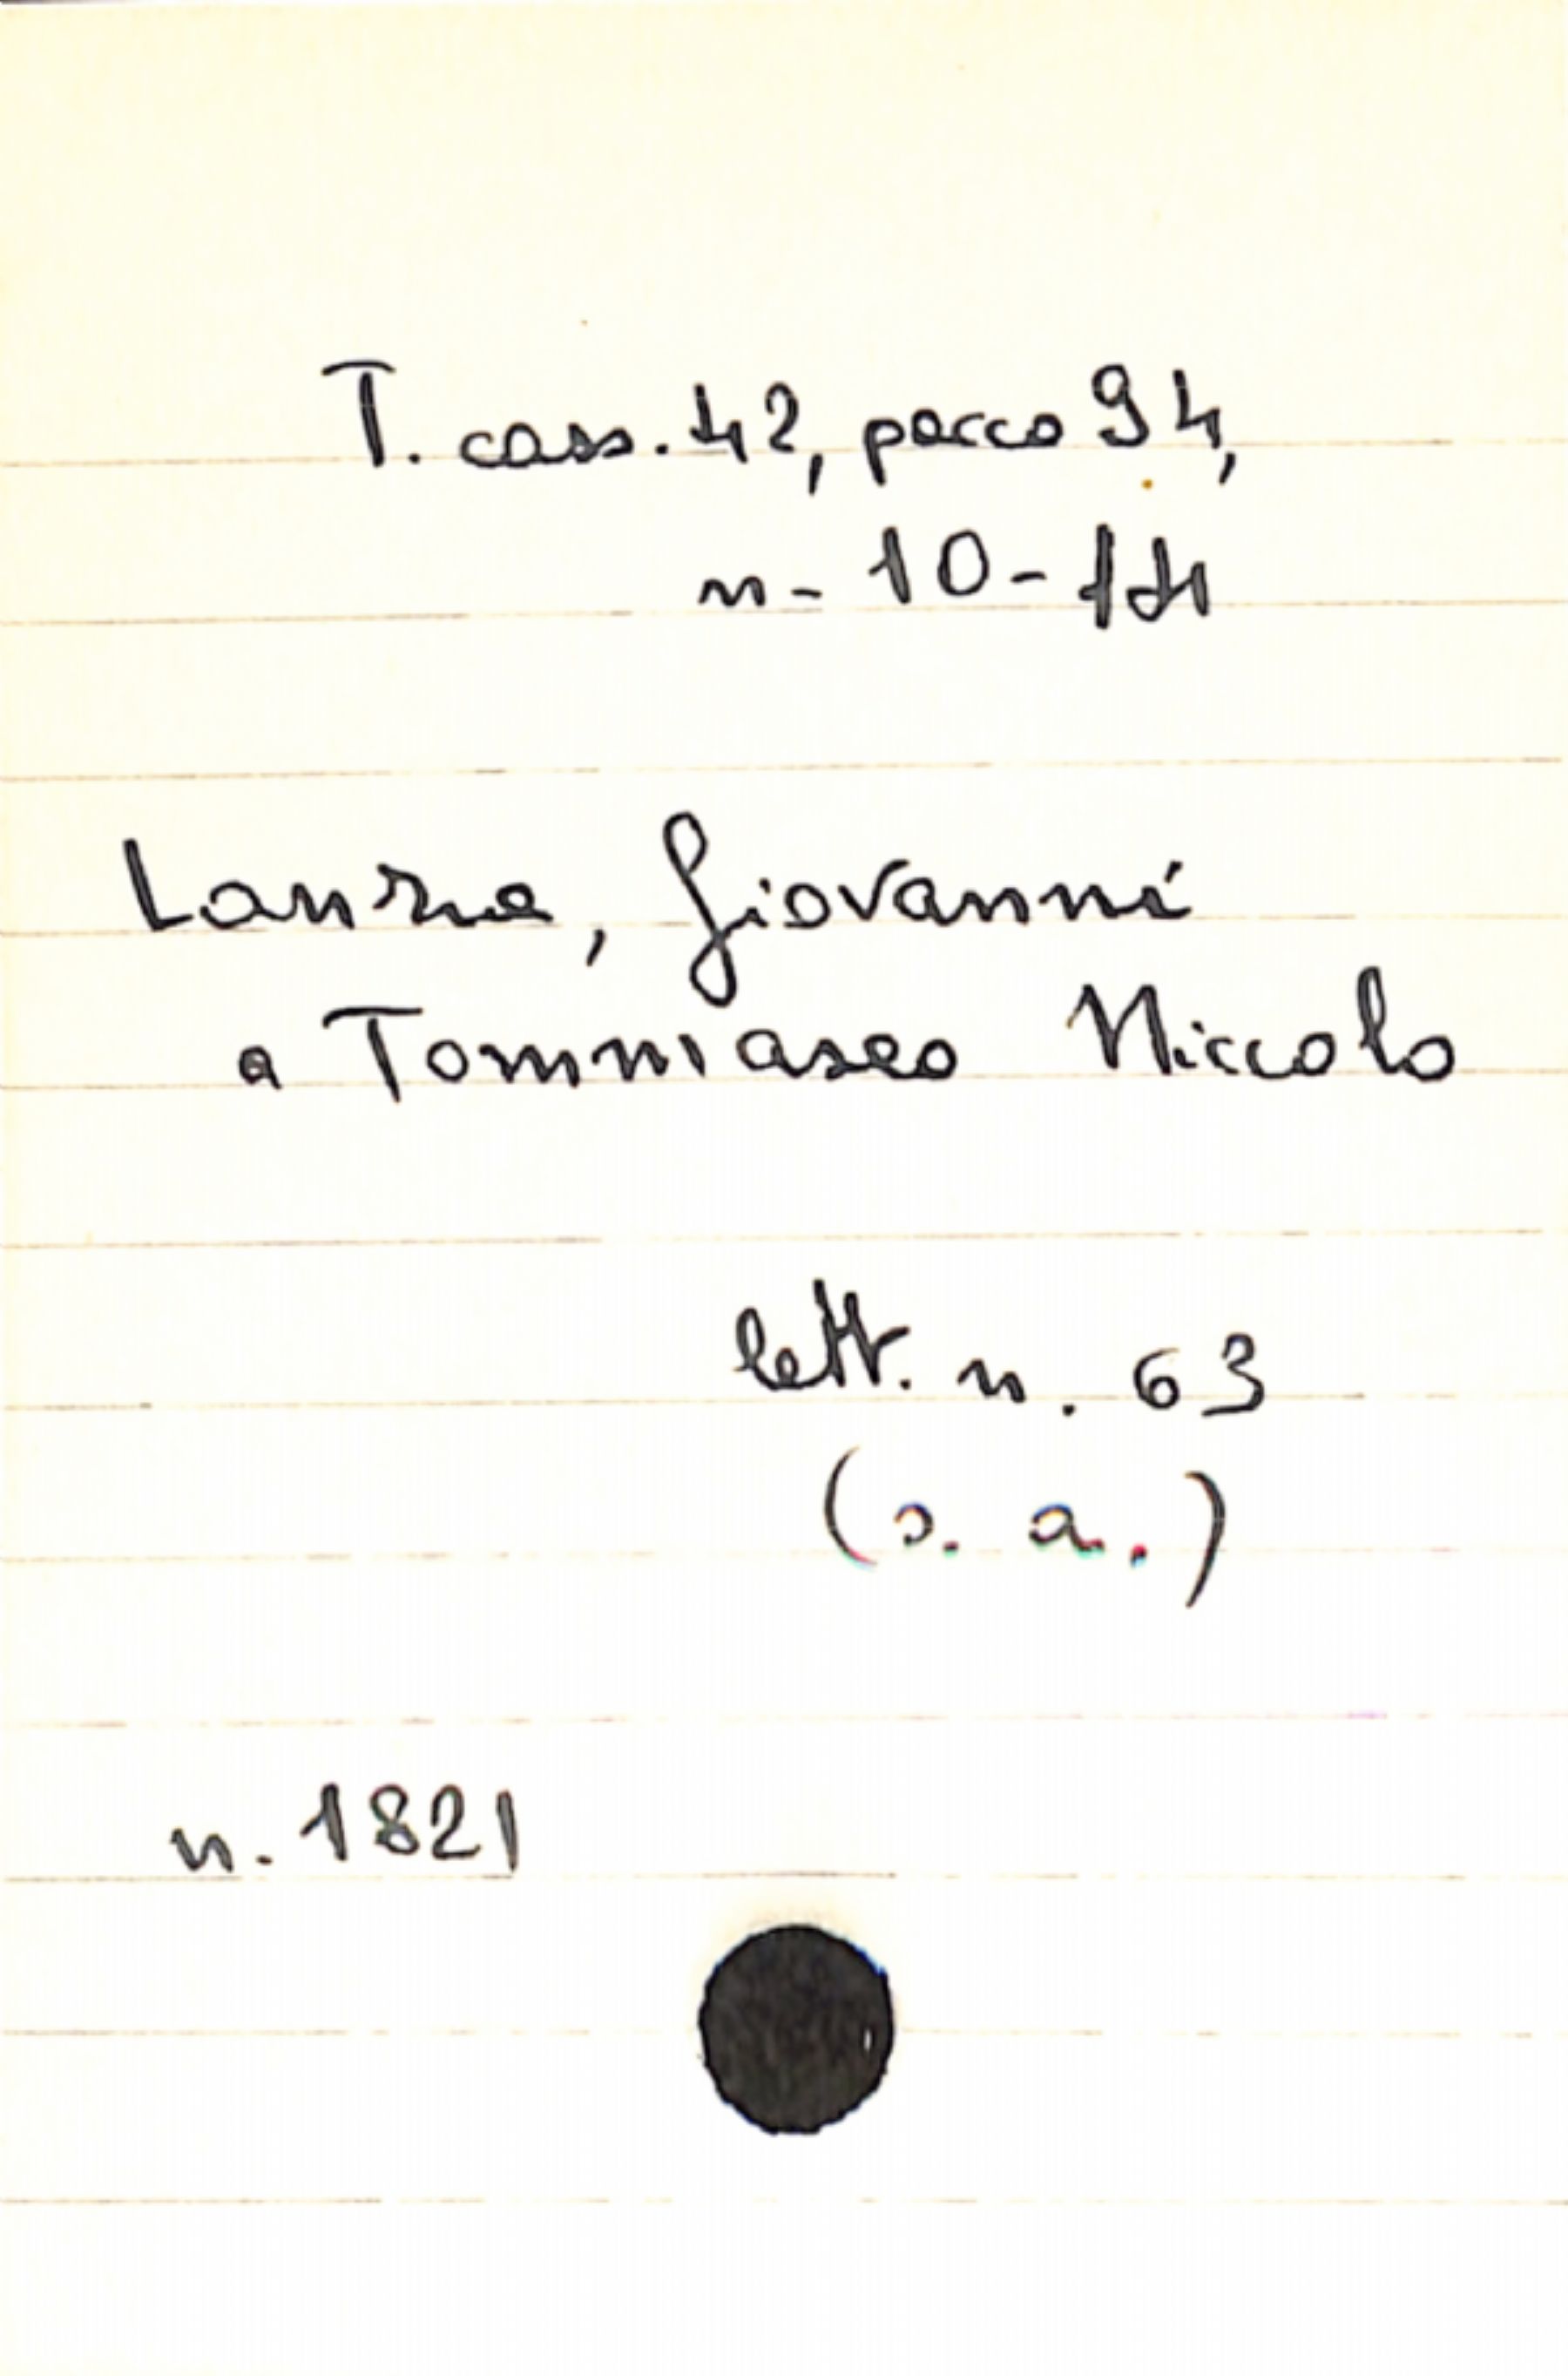 T. cass. 42, pacco 94,
n. 10-14
Lanza, Giovanni
a Tommaseo Niccolo
lett. n. 63
(s. a.)
n. 1821